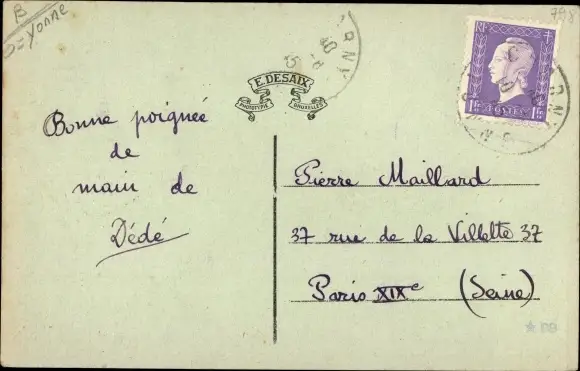 B
D=Yonne
798
E. DESAIX
PHOTOTYPIE BRUXELLES
RF
1F POSTES 1F
Bonne poignée
de
main de
Dédé
Pierre Maillard
37 rue de la Villette 37
Paris XIXe (Seine)